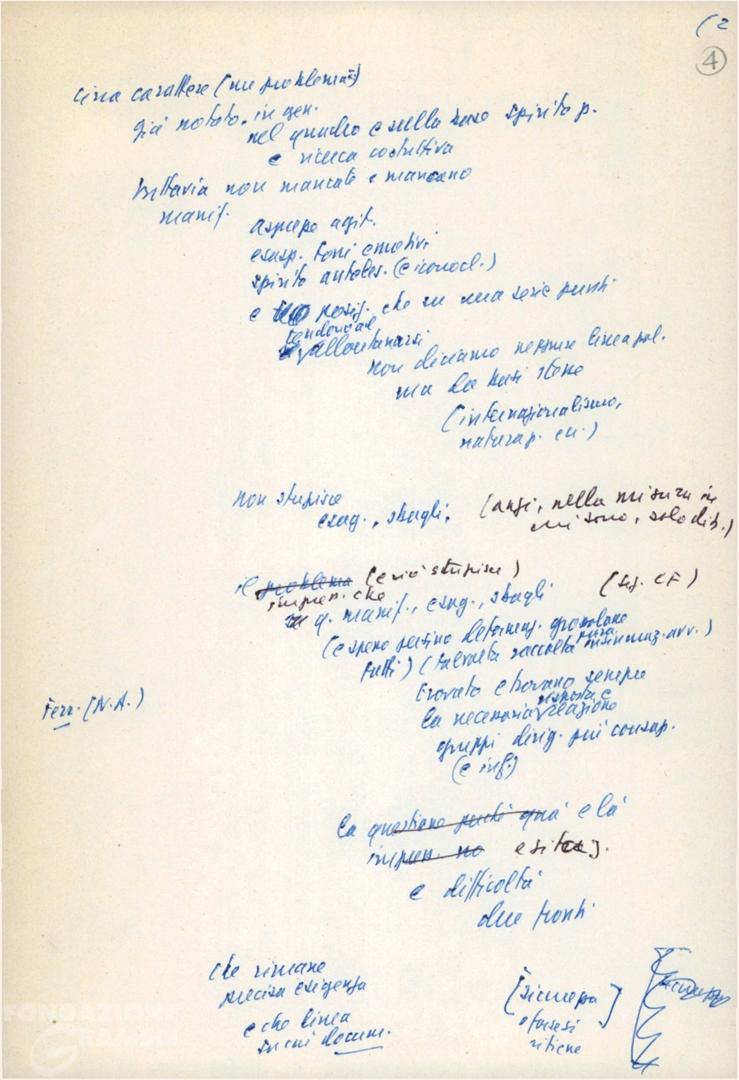 (2
4
circa carattere (nu problema)
già notato. in gen.
nel quadro e sulla base spirito p.
e ricerca costruttiva
Tuttavia non mancate e mancano
manif.
asprezze agit.
esasp. toni emotivi
spirito antites. (e iconocl.)
e posiz. che su una serie punti
tendono al
allontanarsi
non diciamo neppure linea pol.
ma da basi stesse
(internazionalismo,
natura p. ecc.)
non stupisce
esag., sbagli, (anzi, nella misura in
cui sono, solo dib.)
il problema (e ciò stupisce)
impress. che (seg. CF)
q. manif., esag., sbagli
(e spesso persino deformaz. grossolane
pura
tutti) (talvolta raccolta insinuaz. avv.)
trovato e trovano sempre
risposta e
la necessaria reazione
Ferr. (N.A.)
gruppi dirig. più consap.
(e inf.)
la questione perché qua e là
impress. no esitaz.
e difficoltà
due fronti
che rimane
precisa esigenza
e che linea
su cui docum.
[sicurezza]
e forse si
ritiene
FONDAZIONE